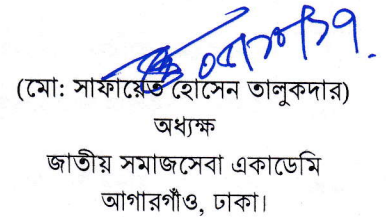 ০৫/১০/১৭.
(মো: সাফায়েত হোসেন তালুকদার)
অধ্যক্ষ
জাতীয় সমাজসেবা একাডেমি
আগারগাঁও, ঢাকা।